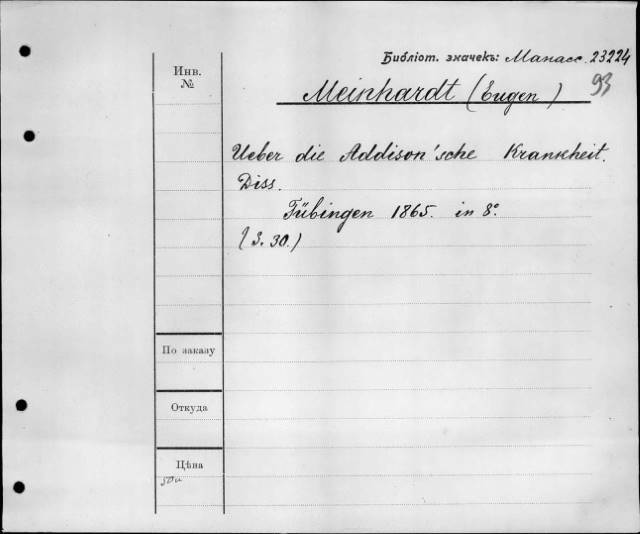 Библіот. значекъ: Манасс. 23224
93
Инв.
№
Meinhardt (Eugen)
Ueber die Addison'sche Krankheit.
Diss.
Tübingen 1865. in 8°.
(S. 30.)
По заказу
Откуда
Цѣна